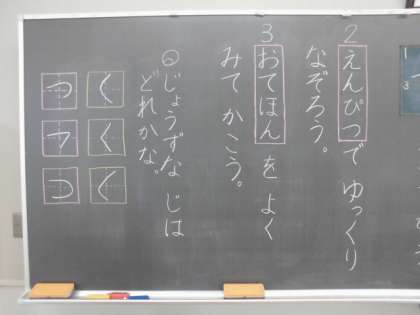 2 えんぴつで ゆっくり
なぞろう。
3 おてほんを よく
みて かこう。
◎じょうずな じは
どれかな。
く く く
つ つ つ
1
3